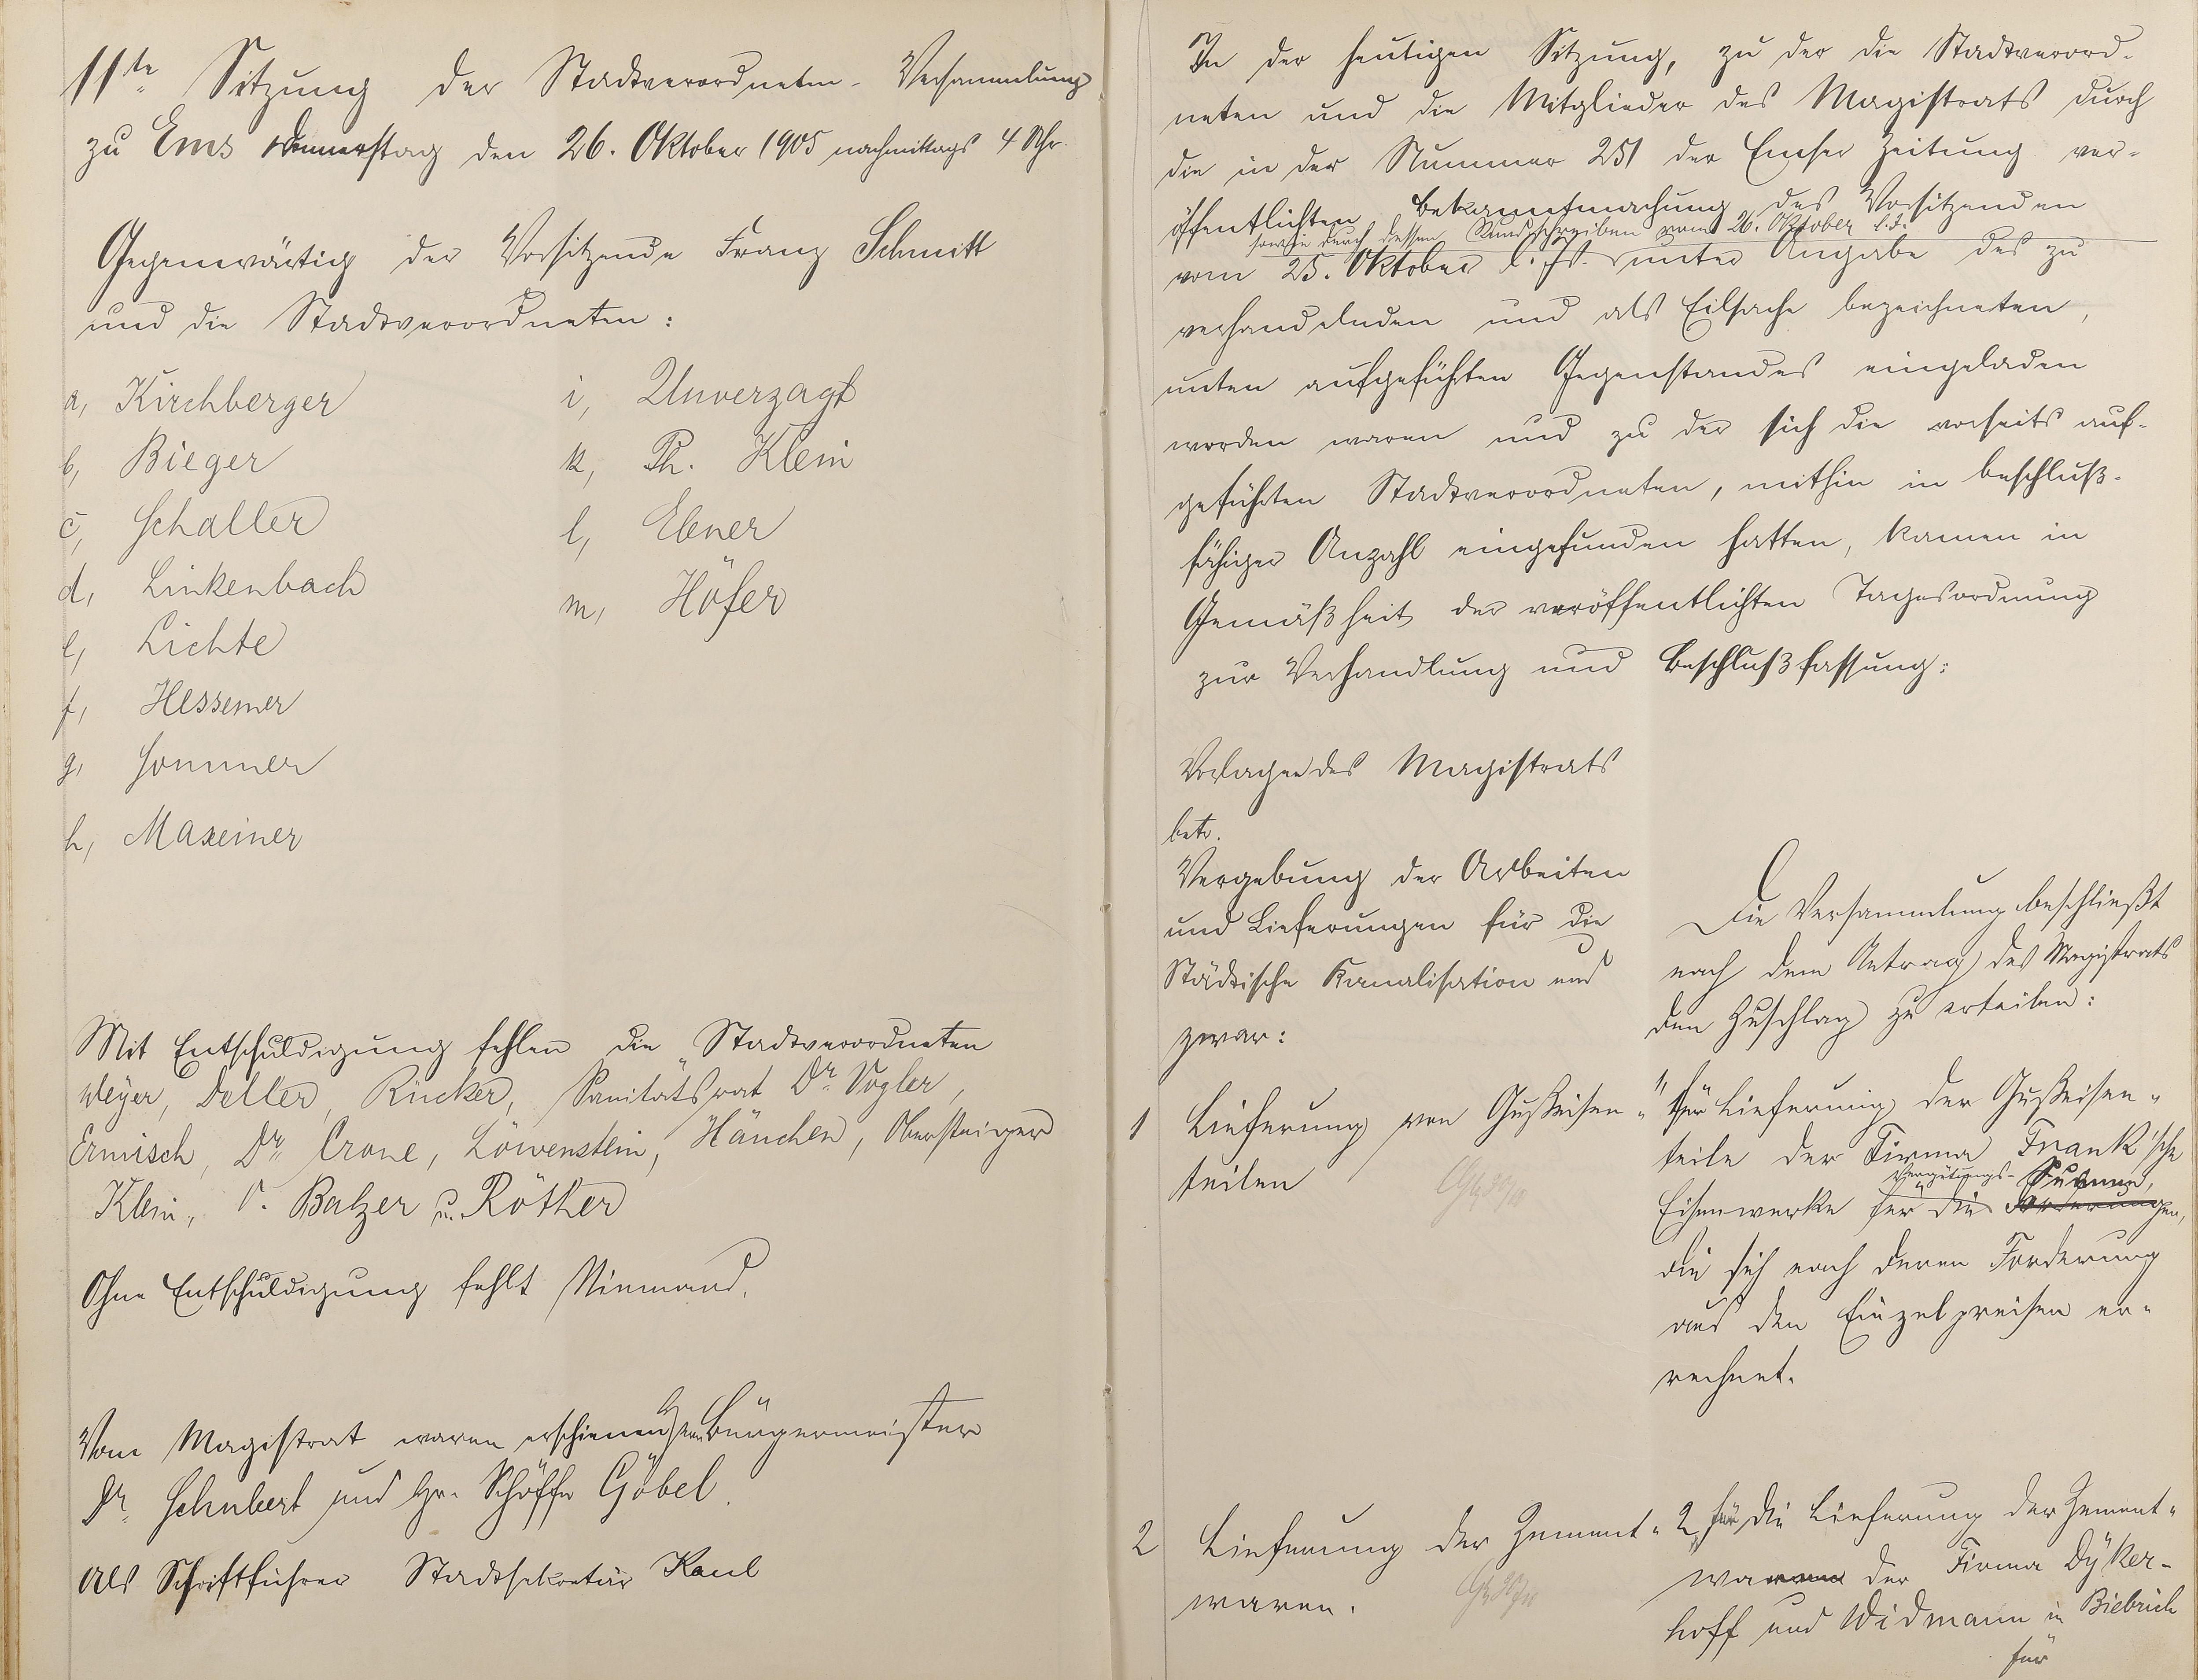 11te Sitzung der Stadtverordneten-Versammlung
zu Ems Donnerstag den 26. Oktober 1905 nachmittags 4 Uhr.
Gegenwärtig der Vorsitzende Franz Schmitt
und die Stadtverordneten:
a, Kirchberger
b, Bieger
c, Schaller
d, Linkenbach
e, Lichte
f, Hessemer
g, Sommer
h, Maxeiner
i, Unverzagt
k, Ph. Klein
l, Ebner
m, Höfer
Mit Entschuldigung fehlen die Stadtverordneten
Weyer, Deller, Rücker, Sanitätsrat Dr. Vogler,
Ermisch, Dr. Crone, Löwenstein, Hänchen, Obersteiger
Klein, Balzer u. Röther
Ohne Entschuldigung fehlt Niemand.
Vom Magistrat waren erschienen Herr Bürgermeister
Dr. Schubert und Hr. Schöffe Göbel.
Als Schriftführer Stadtsekretär Kaul
In der heutigen Sitzung, zu der die Stadtverord-
neten und die Mitglieder des Magistrats durch
die in der Nummer 251 der Emser Zeitung ver-
öffentlichten Bekanntmachung des Vorsitzenden
sowie durch dessen Rundschreiben vom 26. Oktober l. J.
vom 25. Oktober l. Js. unter Angabe des zu
verhandelnden und als Eilsache bezeichneten,
unten aufgeführten Gegenstandes eingeladen
worden waren und zu der sich die vorseits auf-
geführten Stadtverordneten, mithin in beschluß-
fähiger Anzahl eingefunden hatten, kamen in
Gemäßheit der veröffentlichten Tagesordnung
zur Verhandlung und Beschlußfassung:
Vorlage des Magistrats
betr.
Vergebung der Arbeiten
und Lieferungen für die
Städtische Kanalisation und
zwar:
1 Lieferung von Gußeisen-
teilen
2 Lieferung der Zement-
waren.
Die Versammlung beschließt
nach dem Antrag des Magistrats
den Zuschlag zu erteilen:
1, für Lieferung der Gußeisen-
teile der Firma Frank'sche
Vergütungs- Summe,
Eisenwerke für die Forderungen,
die sich nach deren Forderung
aus den Einzelpreisen er-
rechnet.
2, für die Lieferung der Zement-
waren der Firma Dyker-
hoff und Widmann in Biebrich
für